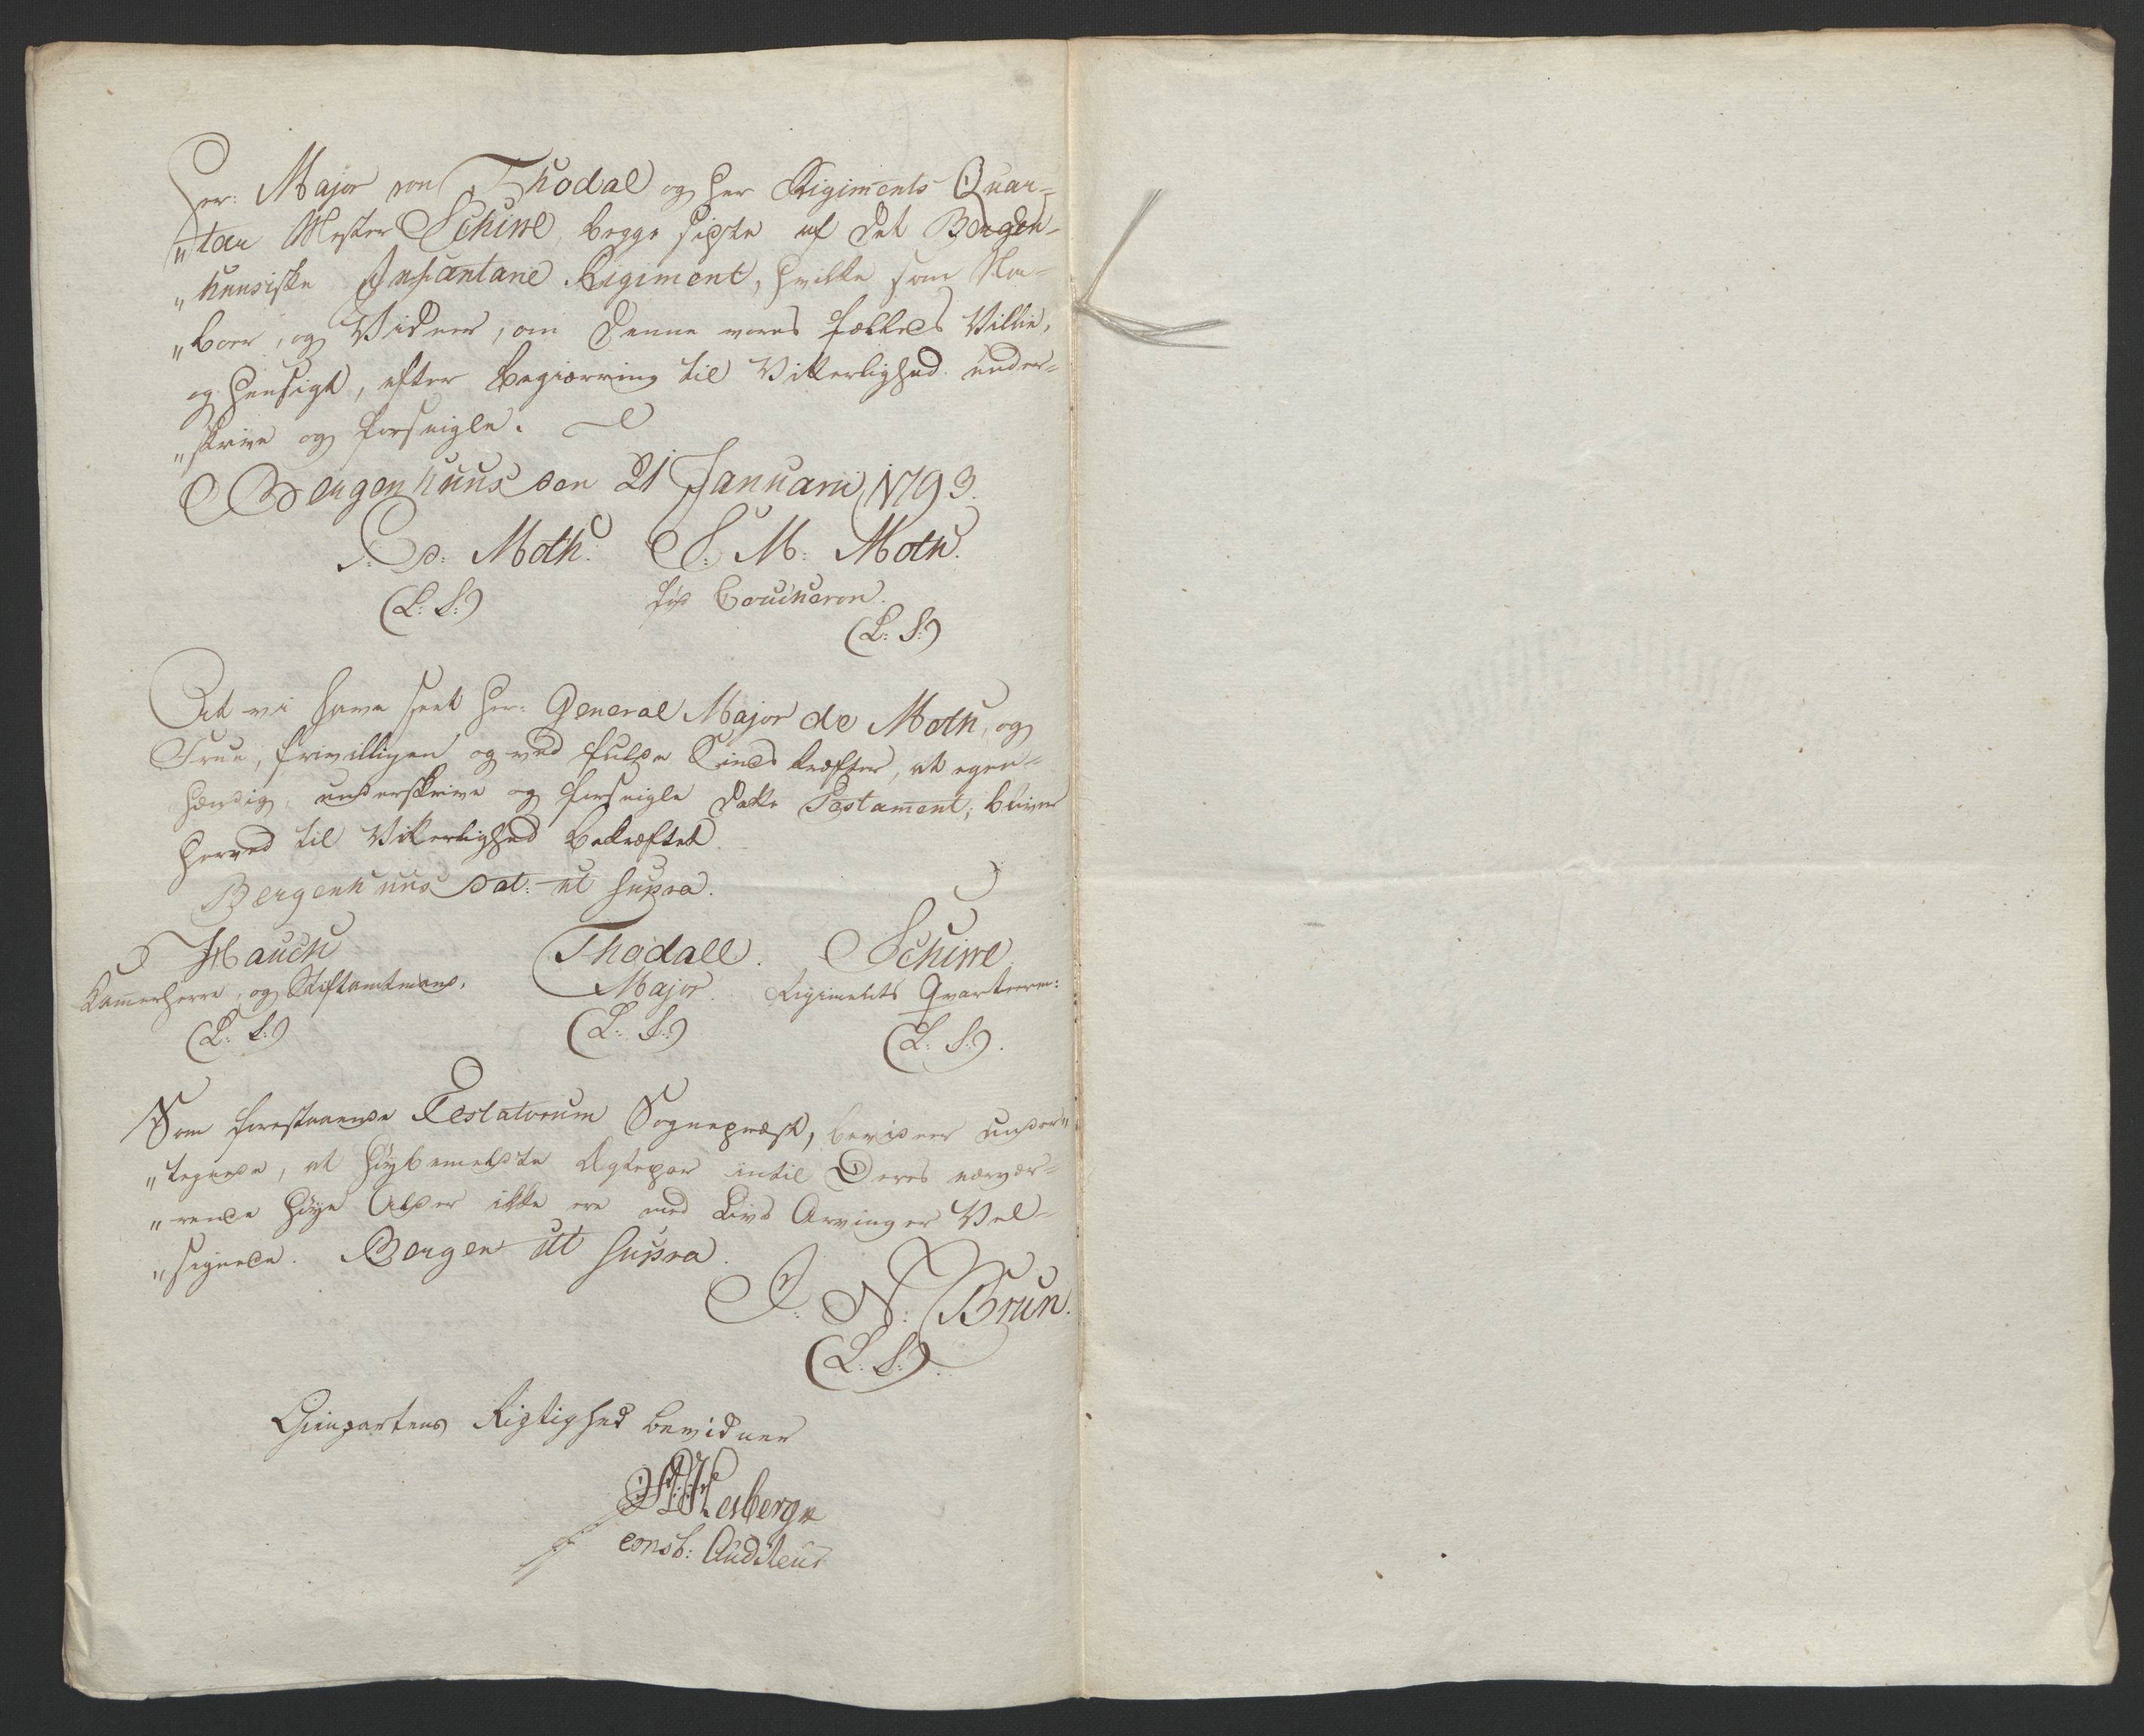 Her: Major von Thodal og Her Rigiments Quar=
"teer Mester Schiwe, begge sidste af det Bergen-
"huusiske Infanterie Rigiment, hvilke som Na=
"boer, og Vidner, om denne vores fælleds Villie,
og Hensigt, efter Begiærring til Vitterlighed under=
"skrive og forseigle.
Bergenhuus den 21 Januarii 1793.
Moth. S. M: Moth.
(L: S:) fød Coucheron.
(L: S:)
At vi have seet Her: General Major de Moth, og
Frue, frivilligen og ved fulde Sinds kræfter, at egen=
hændig underskrive og forseigle dette Testament, bliver
herved til Vitterlighed bekræftet.
Bergenhuus dat: ut supra.
Hauch Thodall. Schiwe
Kammerherre, og Stiftamtmand. Major. Rigiments Qvarteerm:
(L: S:) (L: S:) (L: S:).
Som forestaaende Testatorum Sognepræst, bevidner under"
"tegnede, at Høybemeldte Ægtepar intil Deres nærvær=
"rende høye Alder ikke ere med Livs Arvinger Vel=
"signede. Bergen ut supra.
J: N: Brun.
(L: S:)
Gienpartens Rigtighed bevidner
const: Auditeur